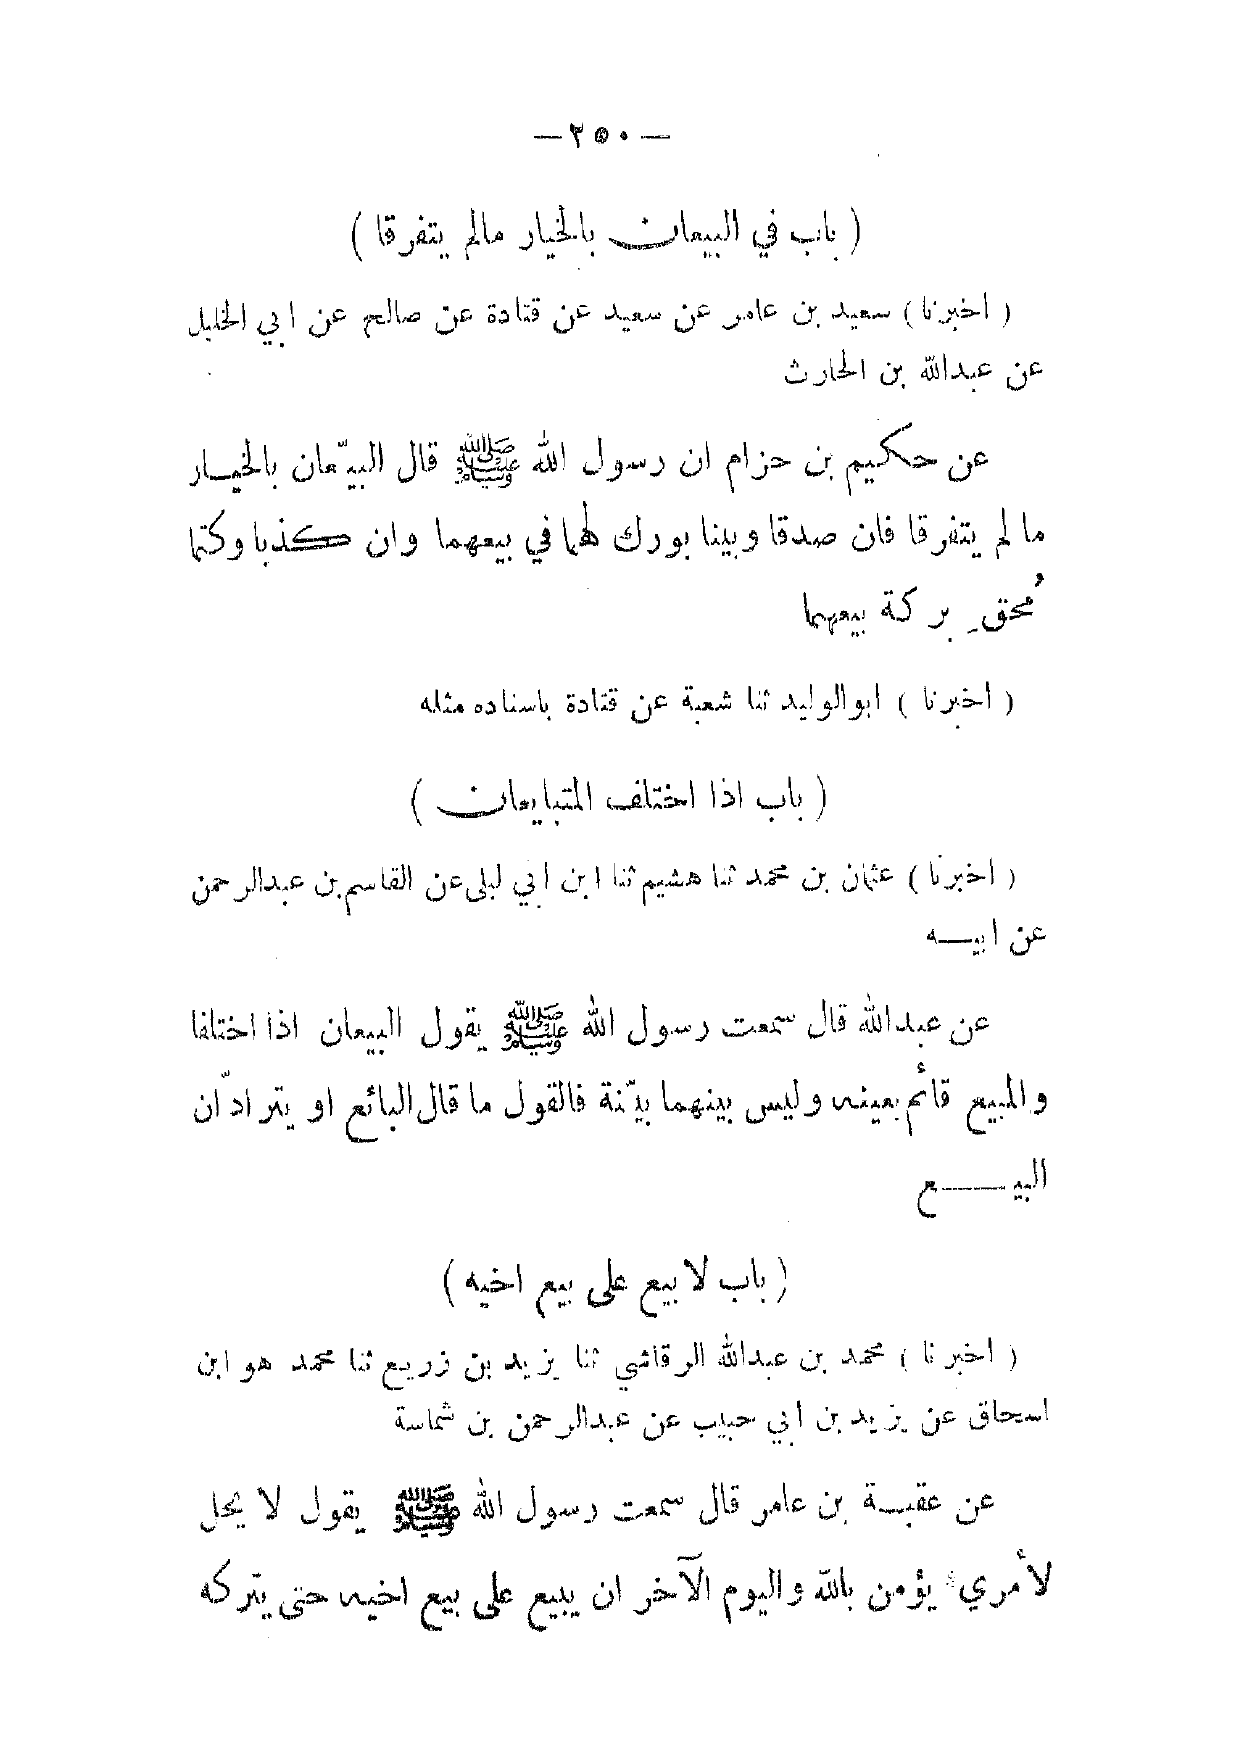 — ٢٥٠ —
( باب في البيعان بالخيار مالم يتفرقا )
( اخبرنا ) سعيد بن عامر عن سعيد عن قتادة عن صالح عن ابي الخليل
عن عبدالله بن الحارث
عن حكيم بن حزام ان رسول الله ﷺ قال البيّعان بالخيـار
ما لم يتفرقا فان صدقا وبينا بورك لهما في بيعهما وان كذبا وكتما
مُحق بركة بيعهما
( اخبرنا ) ابوالوليد ثنا شعبة عن قتادة باسناده مثله
( باب اذا اختلف المتبايعان )
( اخبرنا ) عثمان بن محمد ثنا هشيم ثنا ابن ابي ليلى عن القاسم بن عبدالرحمن
عن ابيـــه
عن عبدالله قال سمعت رسول الله ﷺ يقول البيعان اذا اختلفا
والمبيع قائم بعينه وليس بينهما بيّنة فالقول ما قال البائع او يترادّان
البيــــع
( باب لا بيع على بيع اخيه )
( اخبرنا ) محمد بن عبدالله الرقاشي ثنا يزيد بن زريع ثنا محمد هو ابن
اسحاق عن يزيد بن ابي حبيب عن عبدالرحمن بن شماسة
عن عقبـة بن عامر قال سمعت رسول الله ﷺ يقول لا يحل
لأمريء يؤمن بالله واليوم الآخر ان يبيع على بيع اخيه حتى يتركه